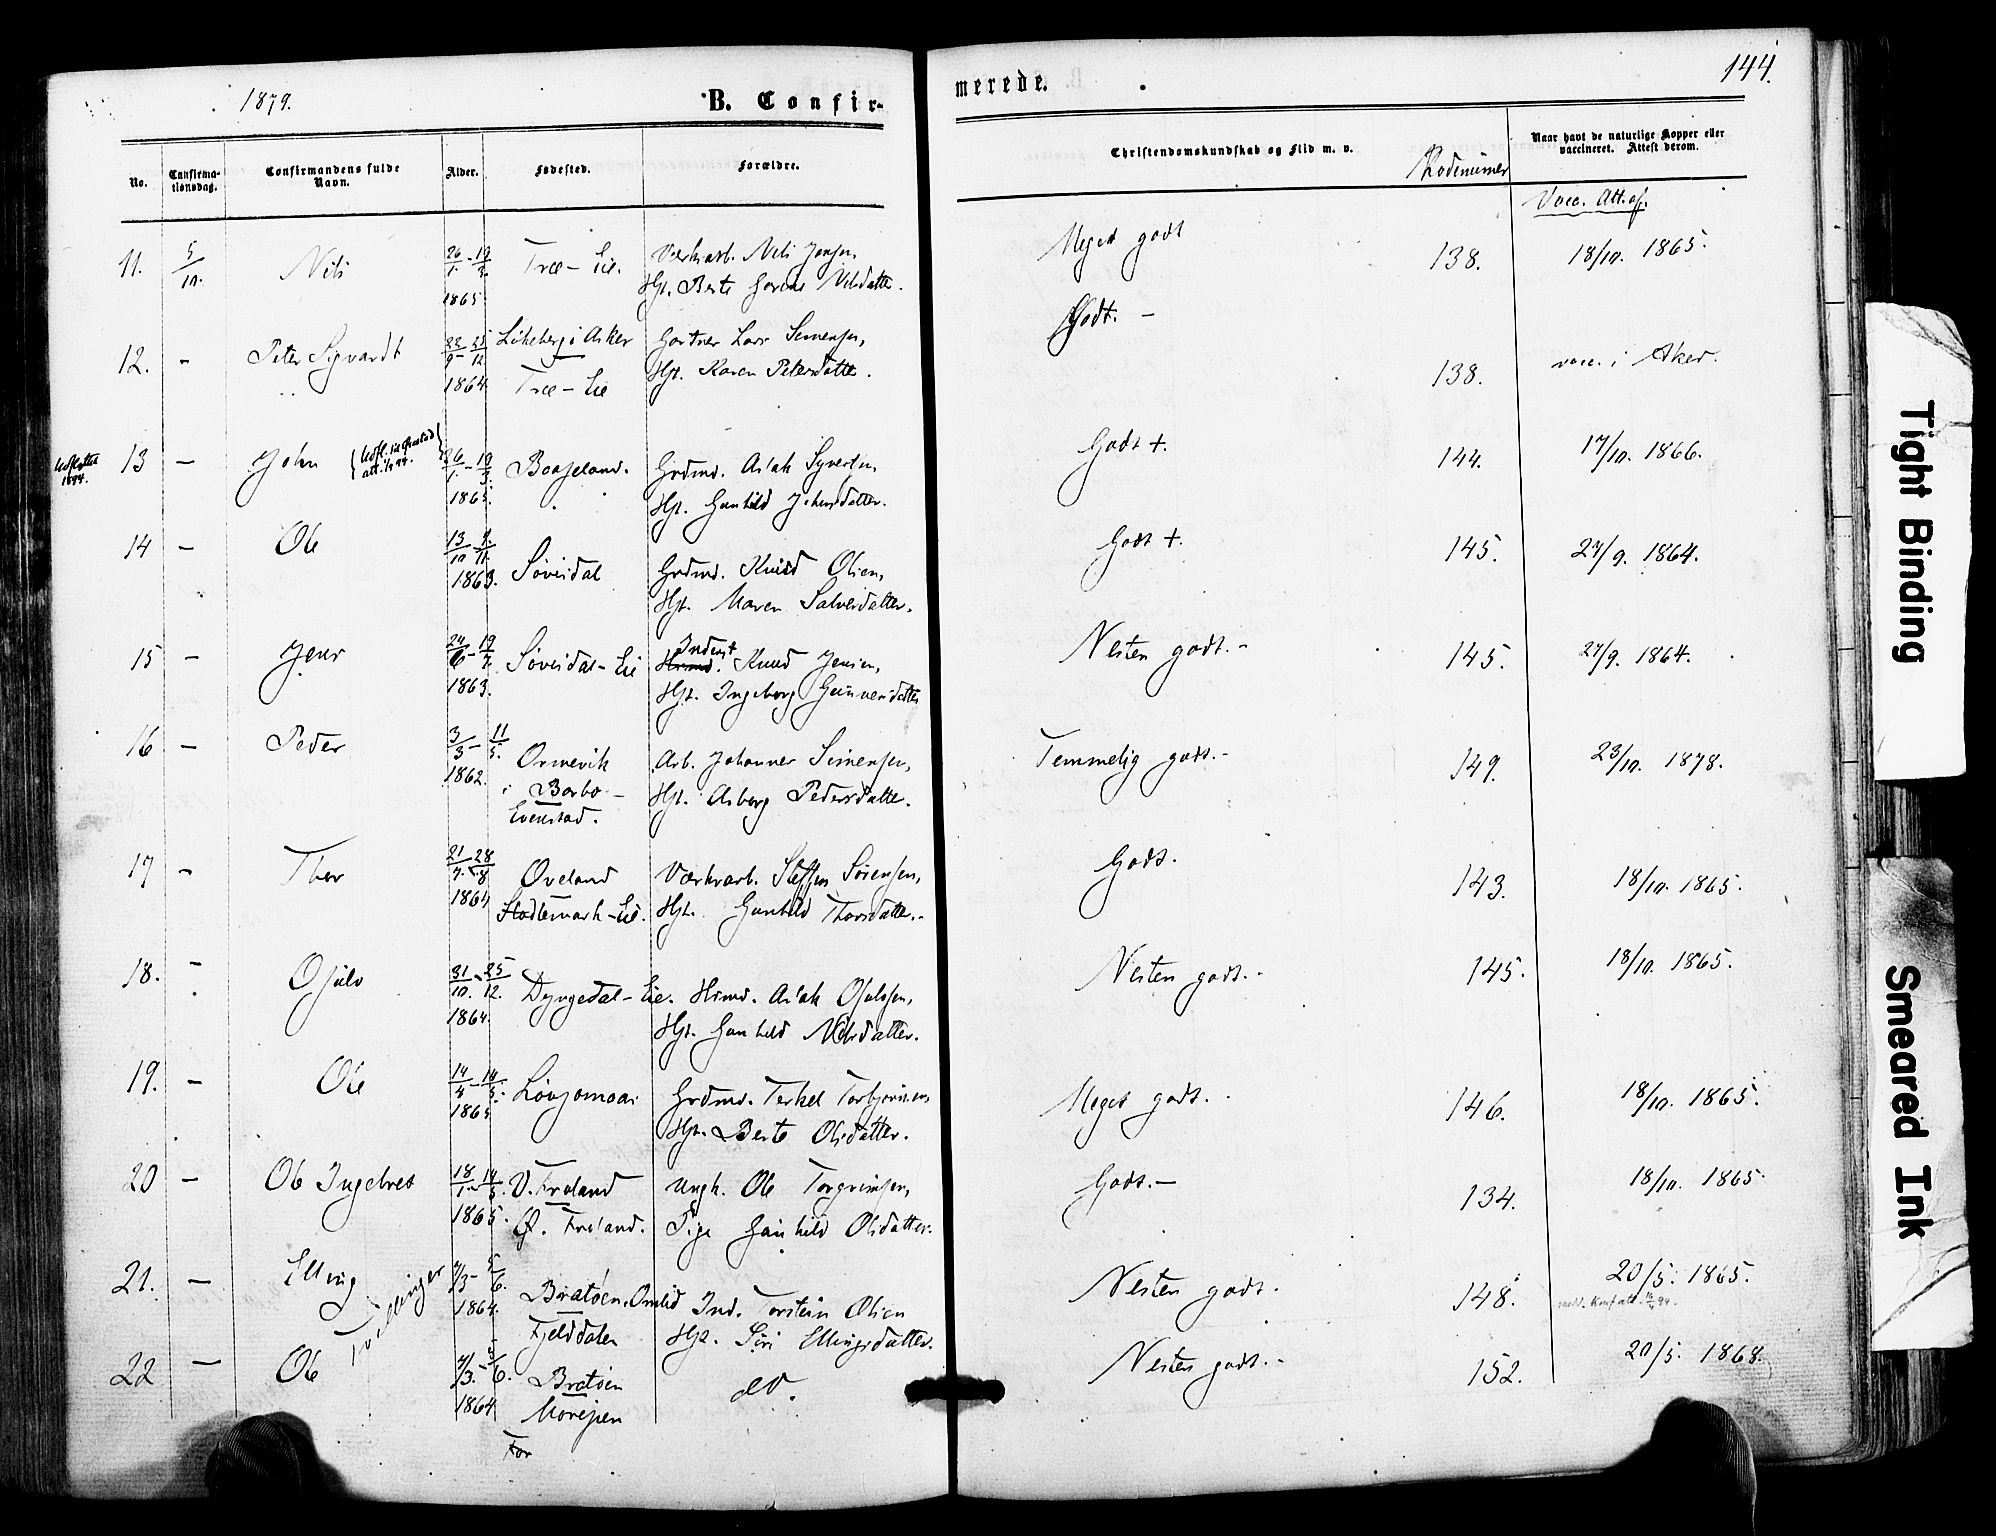 1879.
B. Confir-
merede.
144.
No.
Confirma-
tionsdag.
Confirmandens fulde
Navn.
Alder.
Fødested.
Forældre.
Christendomskundskab og Flid m. v.
Rodenumer
Naar havt de naturlige Kopper eller
vaccineret. Attest derom.
Vacc. Att. af.
11. 5/10. Nils 26/1 - 19/3 1865 Træ - Eie. Værksarb. Nils Jensen,
Hst. Berte Nilsdatter.
Meget godt 138. 18/10. 1865.
12. - Peter Sigvardt 22/9 - 25/12 1864 i Asker
Træ - Eie
Gartner Lars Simensen,
Hst. Karen Petersdatter.
Godt. - 138. vacc. i Aker.
Udflyttet
1894.
13 - John 26/1 - 19/3 1865 Baaseland. Grdmd. Aslak Syvertsen,
Hst. Gunhild Johnsdatter.
Godt +. 144. 17/10. 1866.
14 - Ole 13/10 1863. Søvisdal Grdmd. Knud Olsen,
Hst. Maren Salvesdatter.
Godt +. 145. 27/9. 1864.
15 - Jens 24/6 - 19/7 1863. Søvisdal - Eie Inderst Knud Jensen,
Hst. Ingeborg Gunnersdatter
Nesten godt. - 145. 27/9. 1864.
16 - Peder 3/3 - 11/5. 1862. Ormevik
i Barbo -
Evenstad.
Arb. Johannes Simensen,
Hst. Asborg Pedersdatter.
Temmelig godt. - 149. 23/10. 1878.
17 - Thor 21/7. - 28/8 1864 Oveland
Stadlemark - Eie.
Værksarb. Steffen Sørensen,
Hst. Gunhild Thorsdatter. -
Godt. 143. 18/10. 1865.
18. - Ojulv 31/10. - 25/12. 1864. Dyngedal - Eie. Hsmd. Aslak Ojulvsen,
Hst. Gunhild Nilsdatter.
Nesten godt. - 145. 18/10. 1865.
19. - Ole 14/4 - 14/5. 1865 Løvjomaas Grdmd. Terkel Torbjørnsen,
Hst. Berte Olsdatter.
Meget godt. 146. 18/10. 1865.
20 - Ole Ingebret 18/1 - 14/5. 1865. V. Froland
Ø. Froland.
Ungk. Ole Torgrimsen,
Pige Gunhild Olsdatter.
Godt. - 134. 18/10. 1865.
21. - Elling 7/3 - 5/6. 1864. Bratøen, Omlid
Fjelddalen
Ind. Torstein Olsen
Hst. Siri Ellingsdatter.
Nesten godt. 148. 20/5. 1865.
Tvillinger
22 - Ole 7/3. - 5/6. 1864 Bratøen
do.
Nesten godt. - 152. 20/5. 1868.
Tight Binding
Smeared Ink